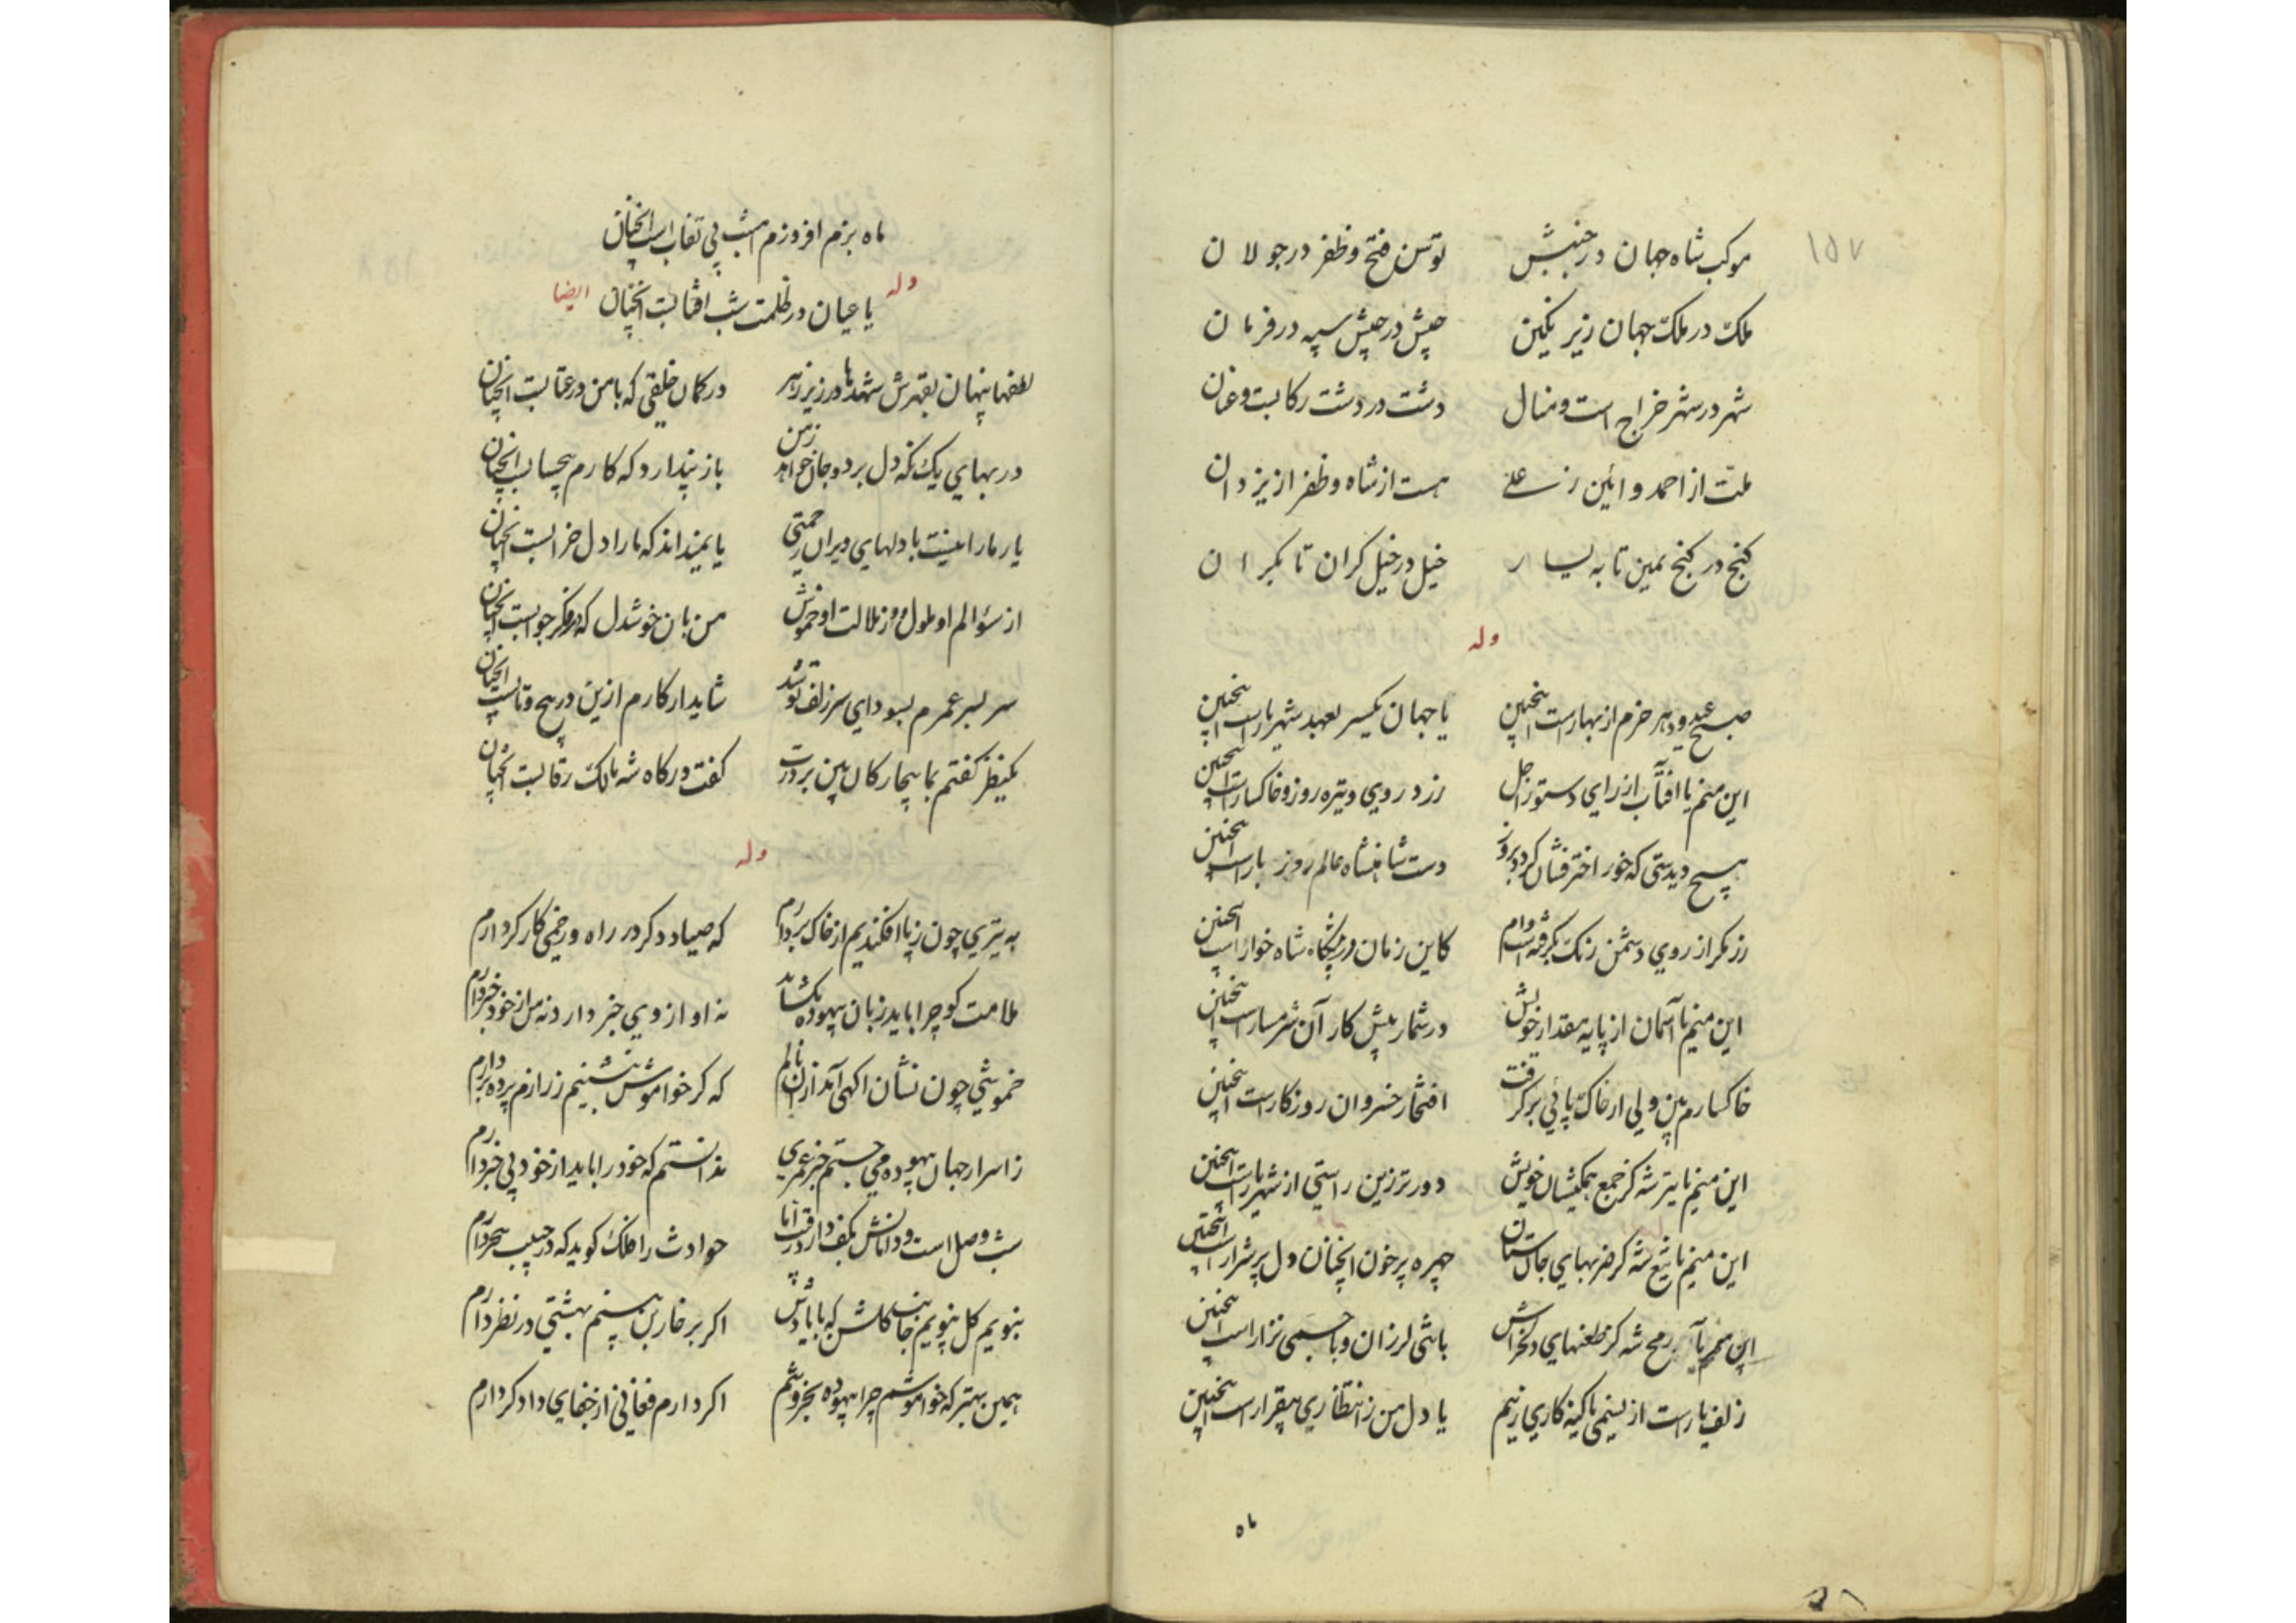 ۱۵۷
موکب شاه جهان در جنبش توسن فتح و ظفر در جولان
ملک در ملک جهان زیر نکین جیش در جیش سپه در فرمان
شهر در شهر خراج است و منال دشت در دشت رکابست و عنان
ملت از احمد و ائین ز علی هست از شاه و ظفر از یزدان
کنج در کنج یمین تا به یسار خیل در خیل کران تا بکران
وله
صبح عید و دهر خرم از بهارست اینچنین یا جهان یکسر بعهد شهریارست اینچنین
این منم یا افتاب از رای دستور اجل زرد روی و تیره روز و خاکسارست اینچنین
هیچ دیدستی که خور اختر فشان کردد بروز دست شاهنشاه عالم روز بارست اینچنین
زر مکر از روی دشمن رنک بکرفته است وام کاین زمان در پیشکاه شاه خوارست اینچنین
این منم یا آسمان از پایه مقدار خویش در شمار پیش کار آن شرمسارست اینچنین
خاکسارم بین ولی از خاک پائی برکرفت افتخار خسروان روزکارست اینچنین
این منم یا تیر شه کز جمع همکیشان خویش دورتر زین راستی از شهریارست اینچنین
این منم یا تیغ شه کز ضربهای جان ستان چهره پر خون انچنان دل پر شرارست اینچنین
این منم یا رمح شه کز طعنهای دلخراش با تنی لرزان و با جسمی نزارست اینچنین
زلف یارست از نسیمی یا کینه کاری زنیم یا دل من ز انتظاری بیقرارست اینچنین
ماه
ماه بزم افروزم امشب بی نقابست انچنان
وله
یا عیان در ظلمت شب افتابست انچنان ایضا
لطفها پنهان بقهرش شهدها در زیر زهر در کمان خلقی که با من در عتابست انچنان
در بهای یک نکه دل برد و جان خواهد ز من باز پندارد که کارم بیحسابست انچنان
یار ما را نیست با دلهای ویران رحمتی یا نمیداند که ما را دل خرابست انچنان
از سؤالم او ملول و ز ملالت او خموش من بان خوشدل که در فکر جوابست انچنان
سر بسر عمرم بسودای سر زلف تو شد شاید ار کارم ازین در پیچ و تابست انچنان
یکنظر کفتم بما بیچارکان بین بر درت کفت درکاه شه مالک رقابست انچنان
وله
به تیری چون ز پا افکندیم از خاک بردارم که صیاد دکر در راه و زخمی کارکر دارم
ملامت کو چرا باید زبان بیهوده بکشاید نه او از وی خبر دارد نه من از خود خبر دارم
خموشی چون نشان اکهی آمد ازان نالم که کر خواموش بنشینم ز رازم پرده بردارم
ز اسرار جهان بیهوده می جستم خبر عمری ندانستم که خود را باید از خود بی خبر دارم
شب وصل است و دامانش بکف دارد رقیب اما حوادث را فلک کوید که در جیب سحر دارم
نبویم کل نپویم جانب کلشن که با یادش اکر بر خار بن بینم بهشتی در نظر دارم
همین بهتر که خواموشم چرا بیهوده بخروشم اکر دارم فغانی از جفای دادکر دارم